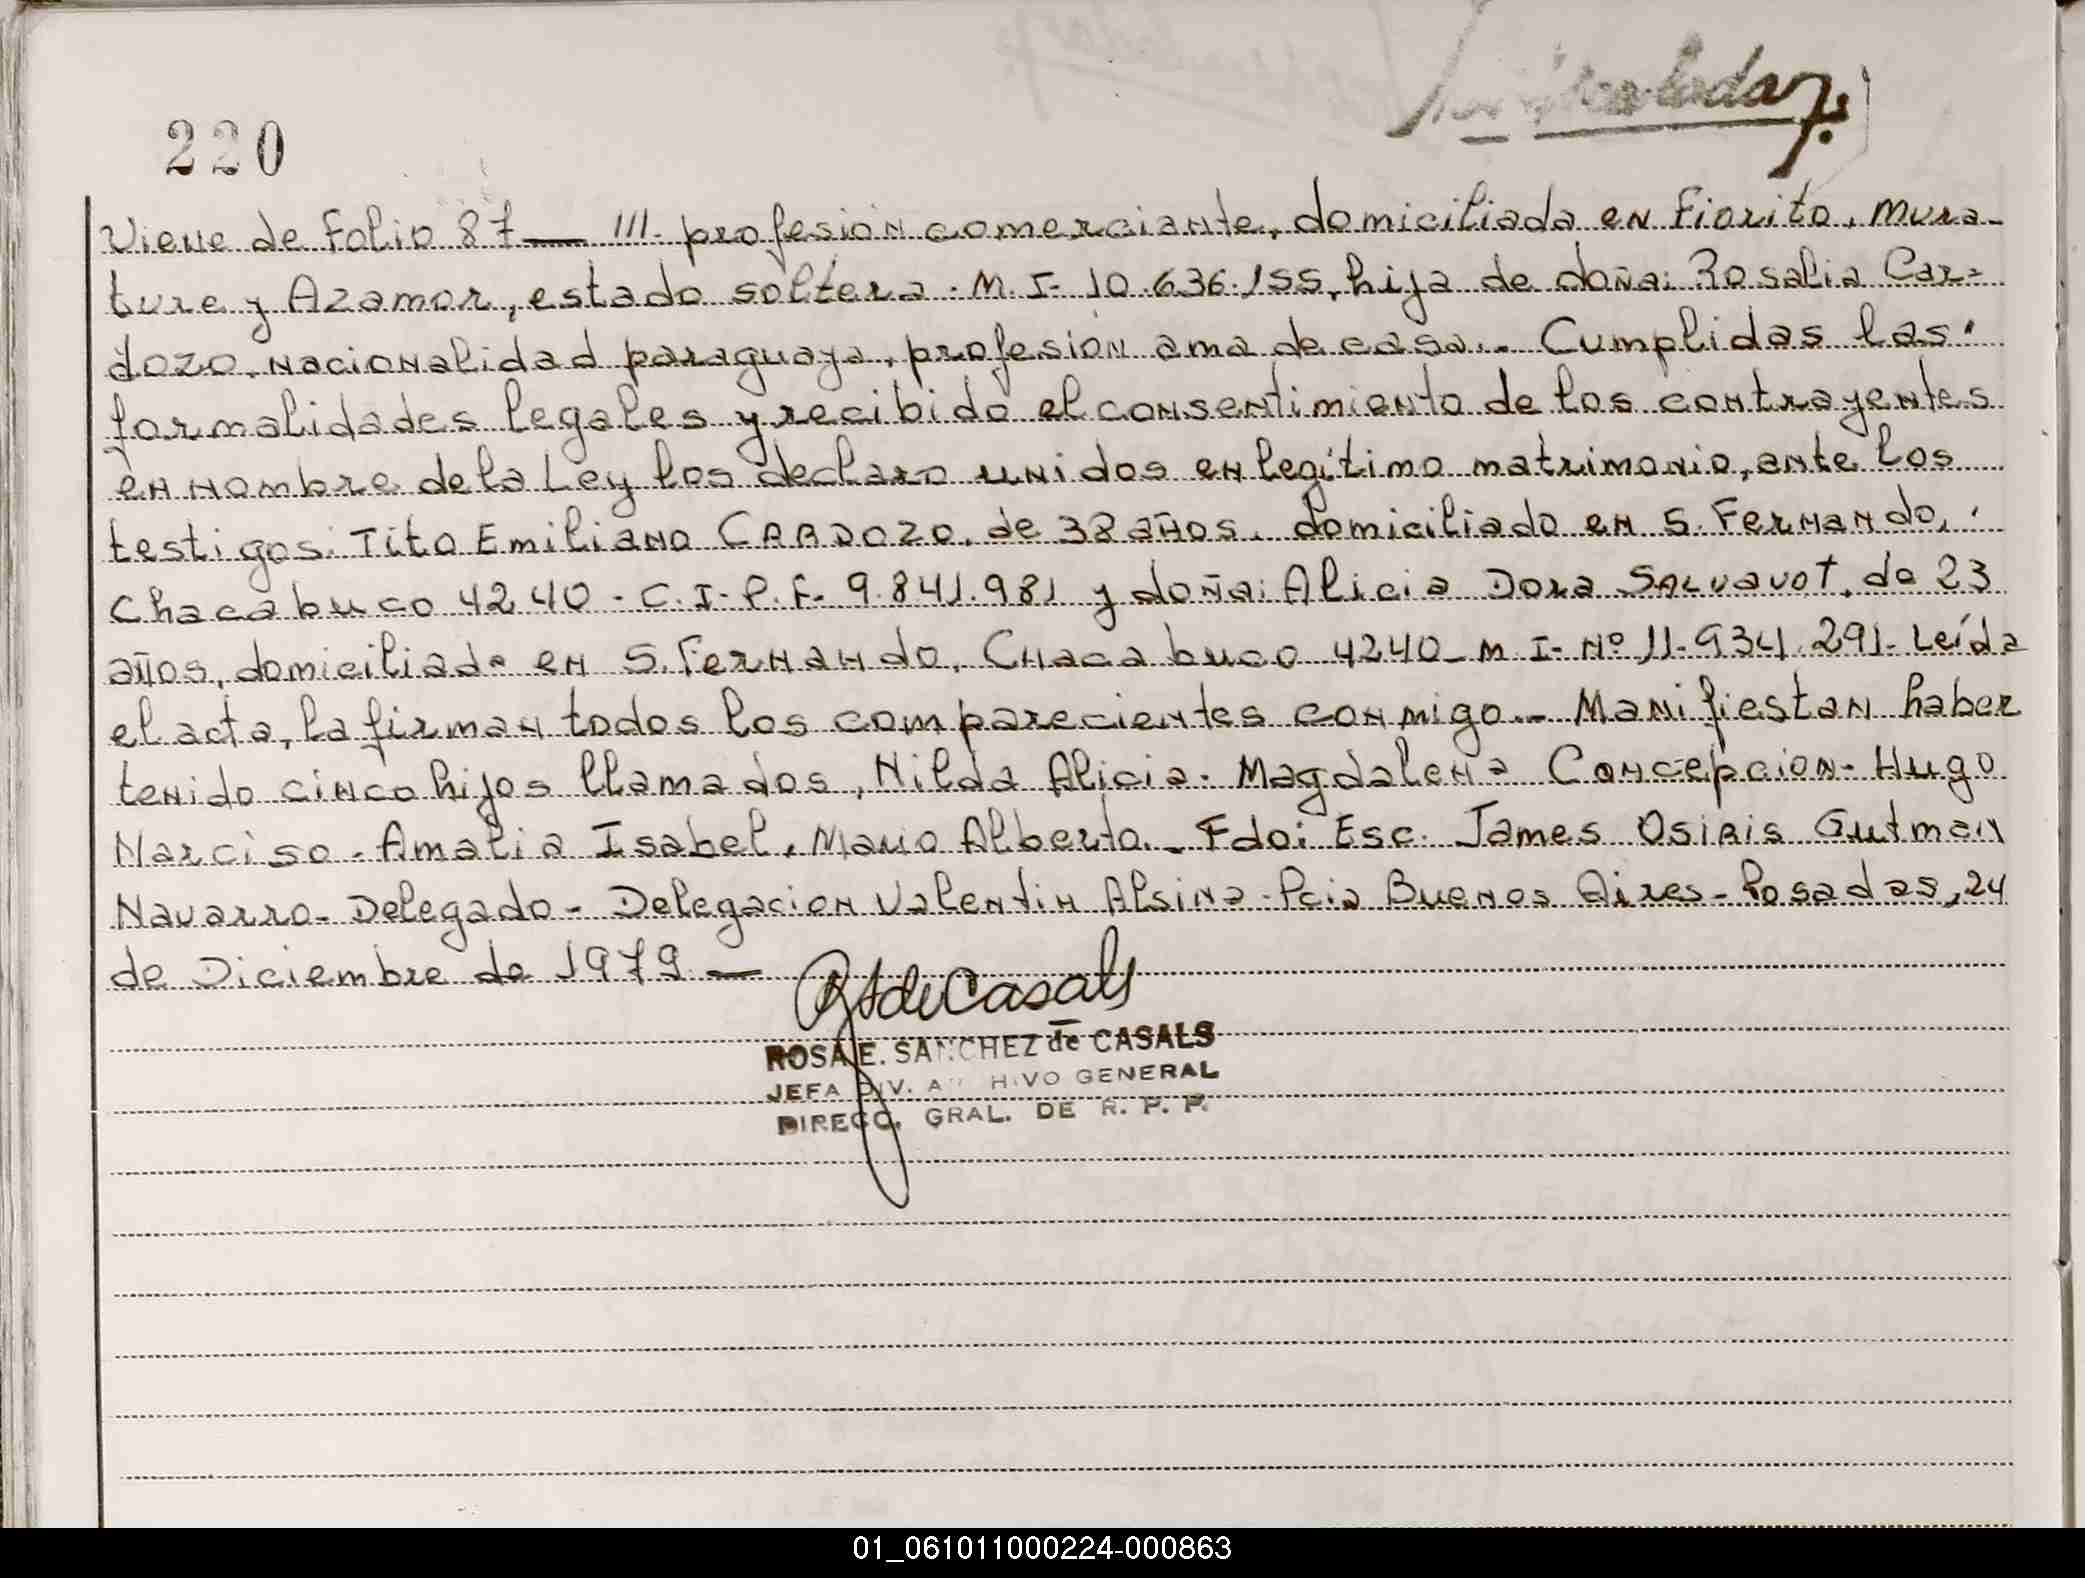 220
Viene de Folio 87 — III. profesión comerciante, domiciliada en Fiorito, Mura-
ture y Azamor, estado soltera. M. I- 10.636.155, hija de doña: Rosalia Car=
dozo, nacionalidad paraguaya, profesión ama de casa.- Cumplidas las
formalidades legales y recibido el consentimiento de los contrayentes
en nombre de la Ley los declaro unidos en legítimo matrimonio, ante los
testigos: Tito Emiliano CARDOZO, de 38 años, domiciliado en S. Fernando,
Chacabuco 4240 - C. I- P. F. 9.841.981 y doña: Alicia Dora , de 23
años, domiciliada en S. Fernando, Chacabuco 4240- M I- Nº 11.934.291- Leída
el acta, la firman todos los comparecientes conmigo.- Manifiestan haber
tenido cinco hijos llamados, Nilda Alicia. Magdalena Concepcion- Hugo
Narciso - Amalia Isabel, Mario Alberto.- Fdo: Esc. James Osiris Gutman
Navarro- Delegado - Delegacion Valentin Alsina - Pcia Buenos Aires - Posadas, 24
de Diciembre de 1979 —
ROSA E. SANCHEZ de CASALS
JEFA DIV. ARCHIVO GENERAL
DIRECC. GRAL. DE R. P. P.
01_061011000224-000863